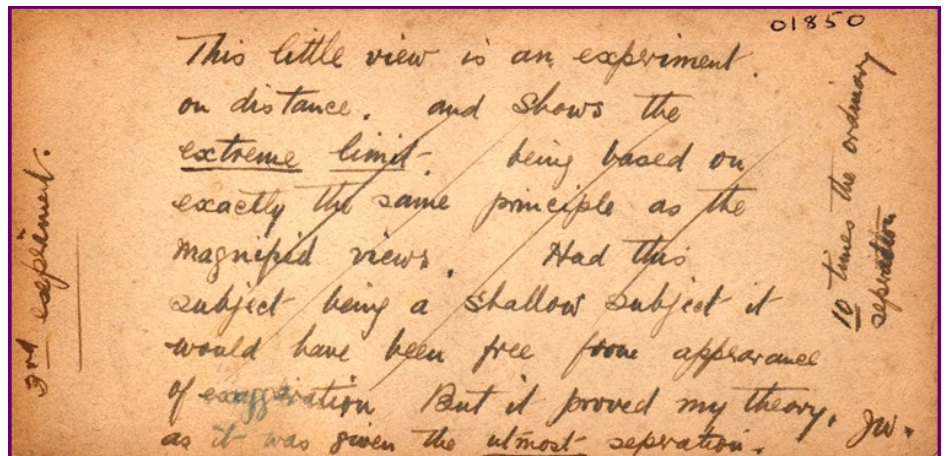 01850
This little view is an experiment.
on distance. and shows the
extreme limit. being based on
exactly the same principle as the
magnifid views. Had this
subject being a shallow subject it
would have been free from appearance
of exaggeration But it proved my theory.
as it was given the utmost sepration.
JW.
10 times the ordinary
sepration
3rd expeiment.